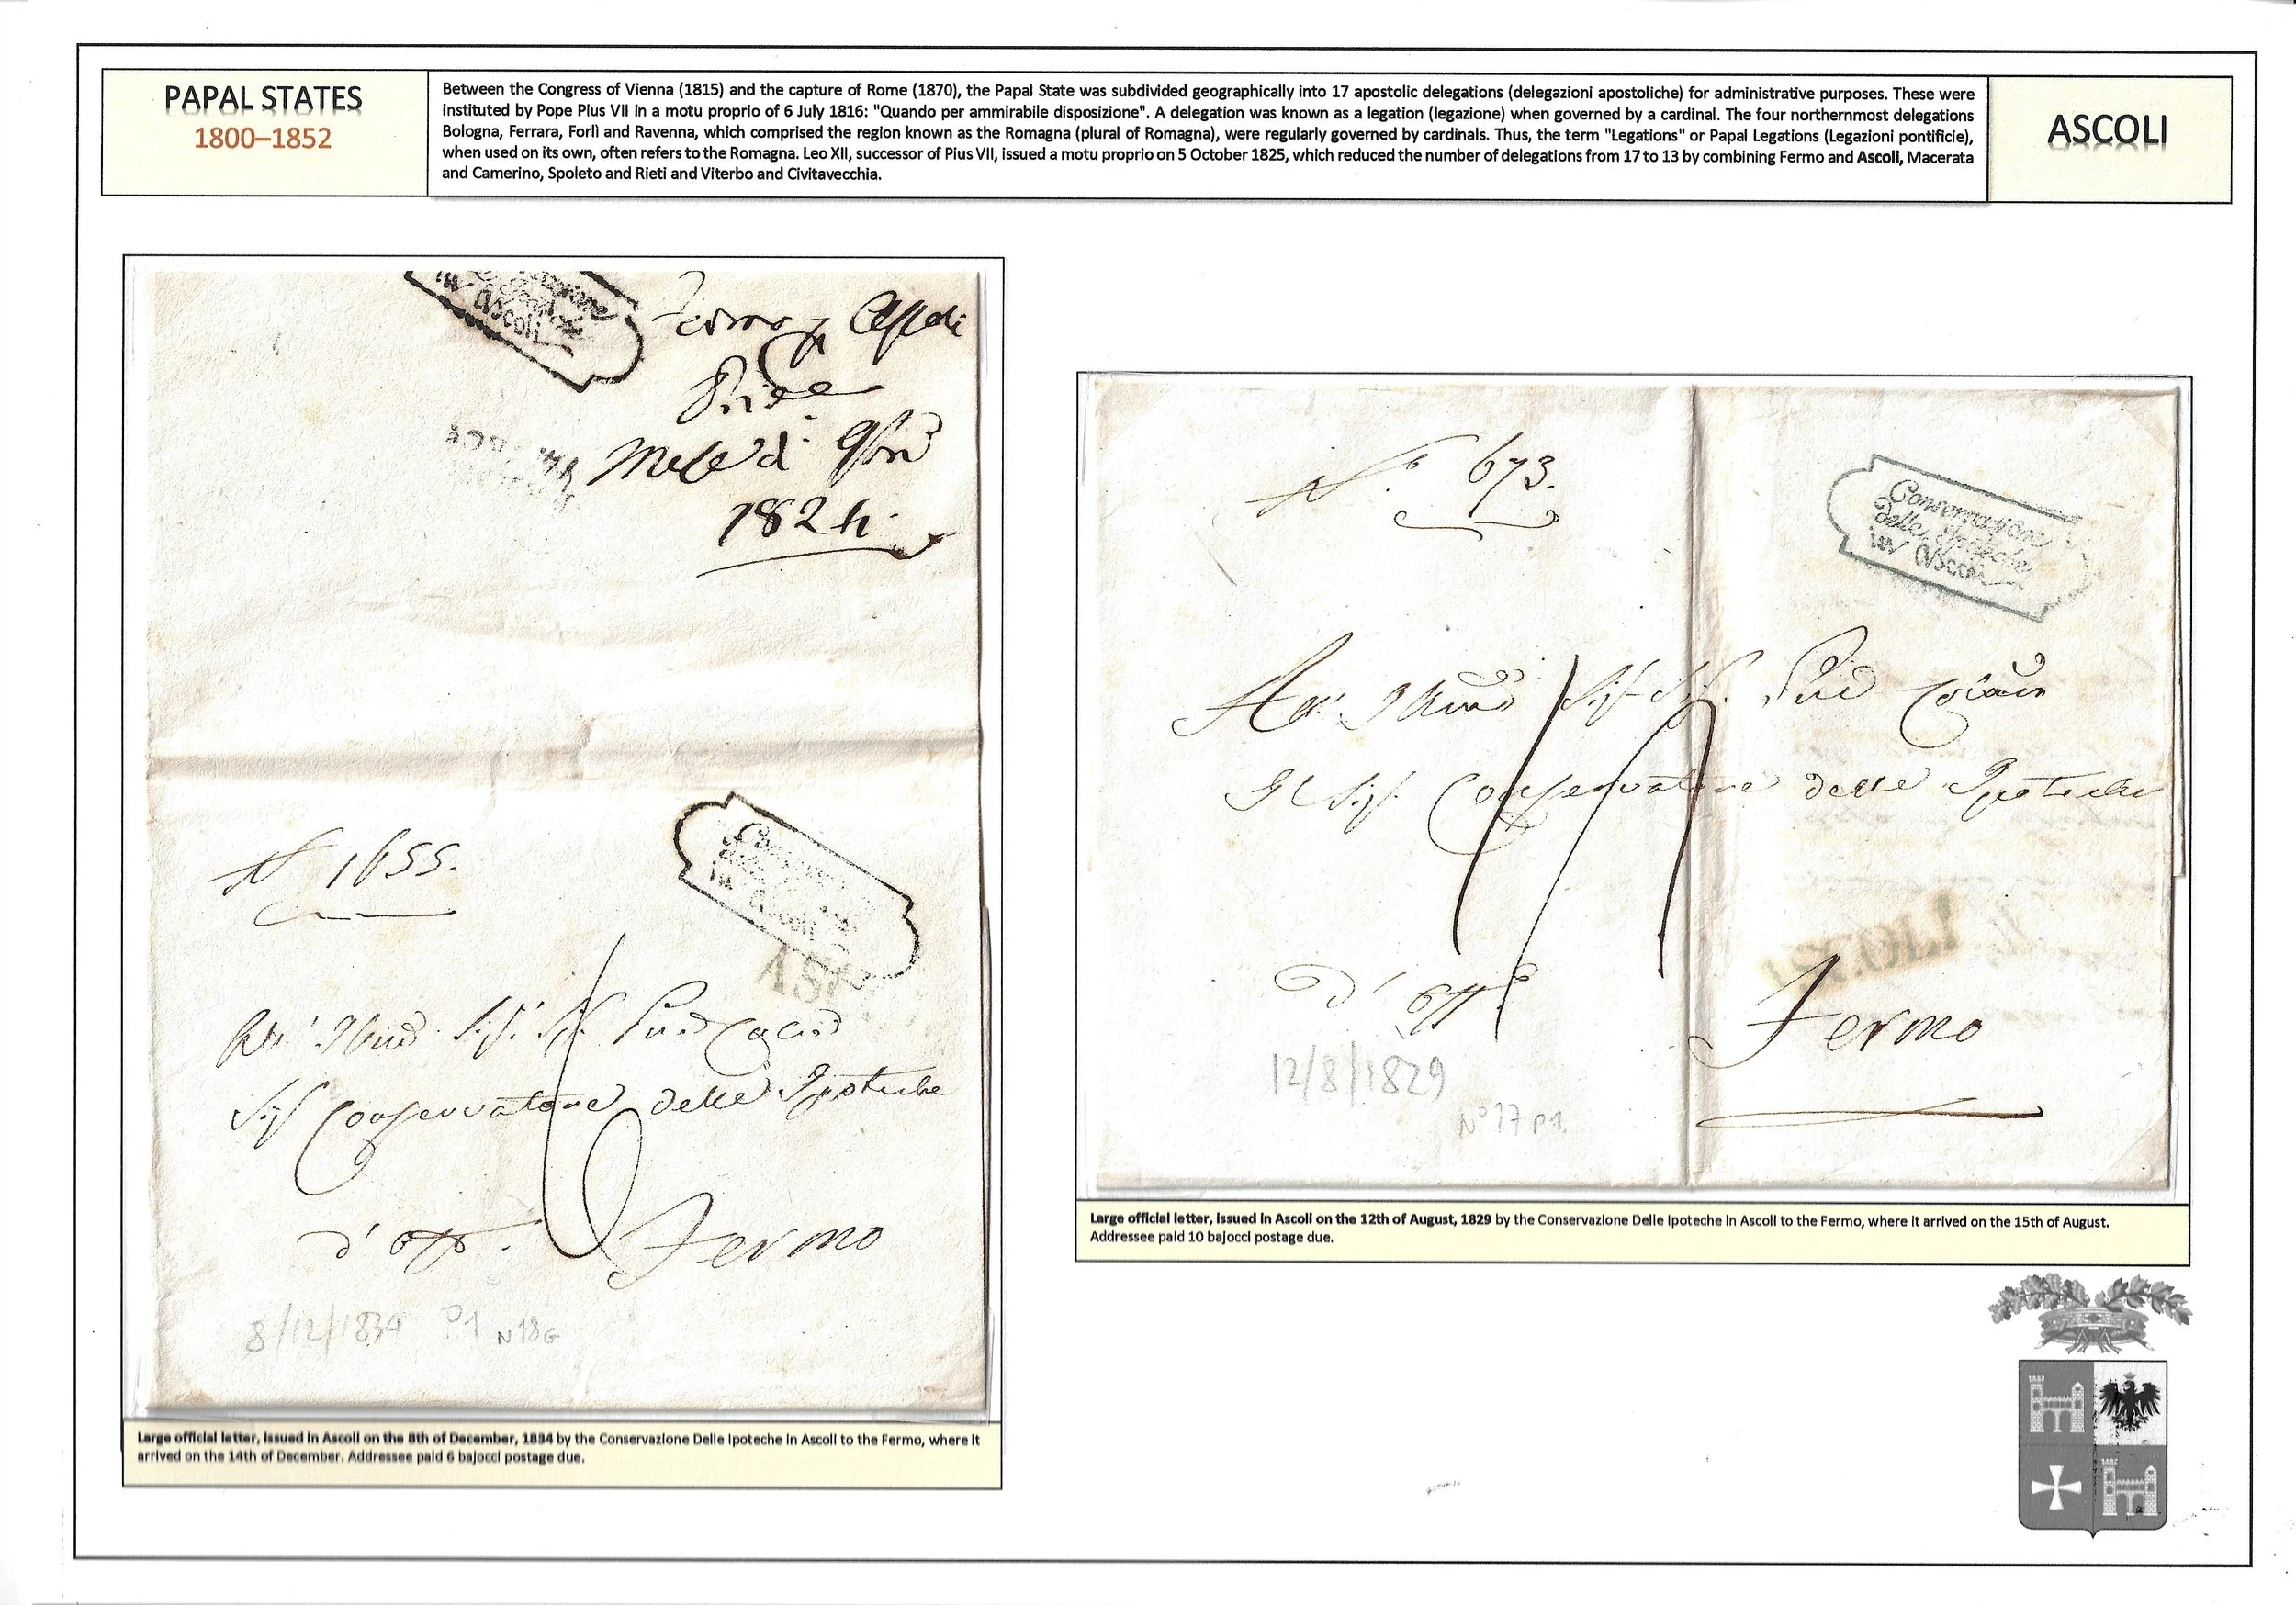 PAPAL STATES
1800–1852
Between the Congress of Vienna (1815) and the capture of Rome (1870), the Papal State was subdivided geographically into 17 apostolic delegations (delegazioni apostoliche) for administrative purposes. These were
instituted by Pope Pius VII in a motu proprio of 6 July 1816: "Quando per ammirabile disposizione". A delegation was known as a legation (legazione) when governed by a cardinal. The four northernmost delegations
Bologna, Ferrara, Forlì and Ravenna, which comprised the region known as the Romagna (plural of Romagna), were regularly governed by cardinals. Thus, the term "Legations" or Papal Legations (Legazioni pontificie),
when used on its own, often refers to the Romagna. Leo XII, successor of Pius VII, issued a motu proprio on 5 October 1825, which reduced the number of delegations from 17 to 13 by combining Fermo and Ascoli, Macerata
and Camerino, Spoleto and Rieti and Viterbo and Civitavecchia.
ASCOLI
in Ascoli
Fermo
Mese di
N 1655.
in Ascoli
Conservatore delle Ipoteche
Fermo
8/12/1834 P1 N18G
Large official letter, issued in Ascoli on the 8th of December, 1834 by the Conservazione Delle Ipoteche in Ascoli to the Fermo, where it
arrived on the 14th of December. Addressee paid 6 bajocci postage due.
N. 673.
Conservazione
delle Ipoteche
in Ascoli
Conservatore delle Ipoteche
Fermo
12/8/1829
N°17 P1
Large official letter, issued in Ascoli on the 12th of August, 1829 by the Conservazione Delle Ipoteche in Ascoli to the Fermo, where it arrived on the 15th of August.
Addressee paid 10 bajocci postage due.